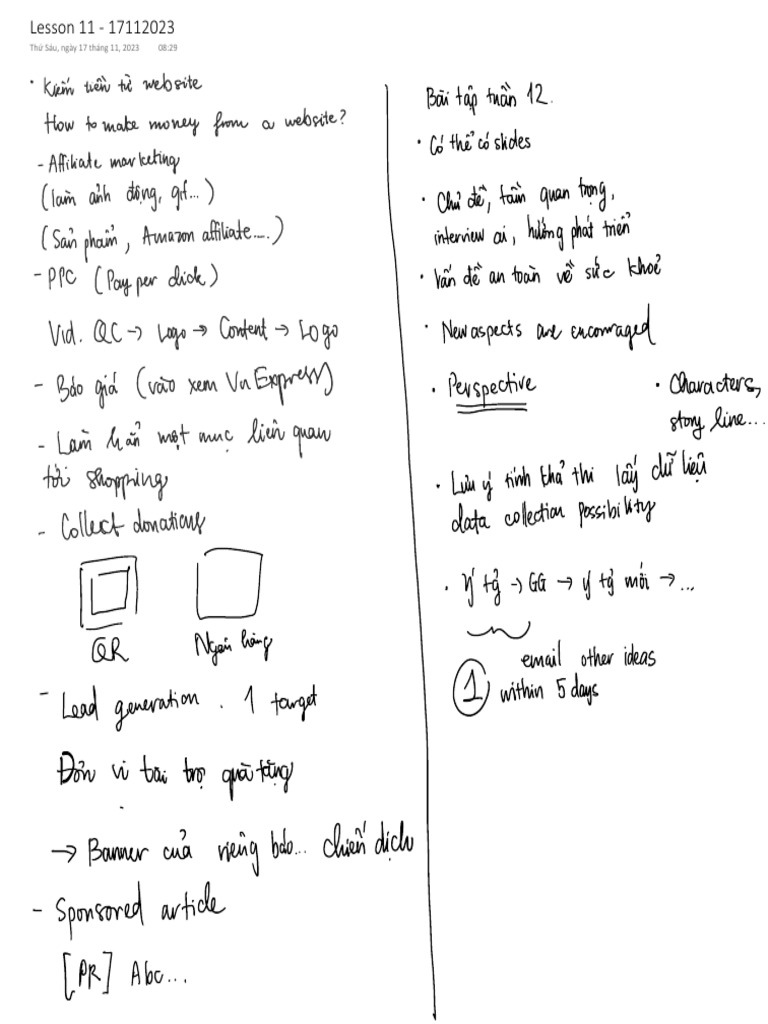 Lesson 11 - 17112023
Thứ Sáu, ngày 17 tháng 11, 2023 08:29
• Kiếm tiền từ website
How to make money from a website?
- Affiliate marketing
(làm ảnh động, gif...)
(Sản phẩm, Amazon affiliate.....)
- PPC (Pay per click)
Vid. QC → Logo → Content → Logo
- Báo giá (vào xem VnExpress)
- Làm hẳn một mục liên quan
tới shopping
- Collect donations
QR
Ngân hàng
- Lead generation. 1 target
Đơn vị tài trợ quà tặng
→ Banner của riêng báo... chiến dịch
- Sponsored article
[PR] Abc...
Bài tập tuần 12.
• Có thể có slides
• Chủ đề, tầm quan trọng,
interview ai, hướng phát triển
• Vấn đề an toàn về sức khoẻ
• New aspects are encouraged
• Perspective
• Characters,
story line...
• Lưu ý tính khả thi lấy dữ liệu
data collection possibility
• Ý tg̉ → GG → ý tg̉ mới → ...
1
email other ideas
within 5 days